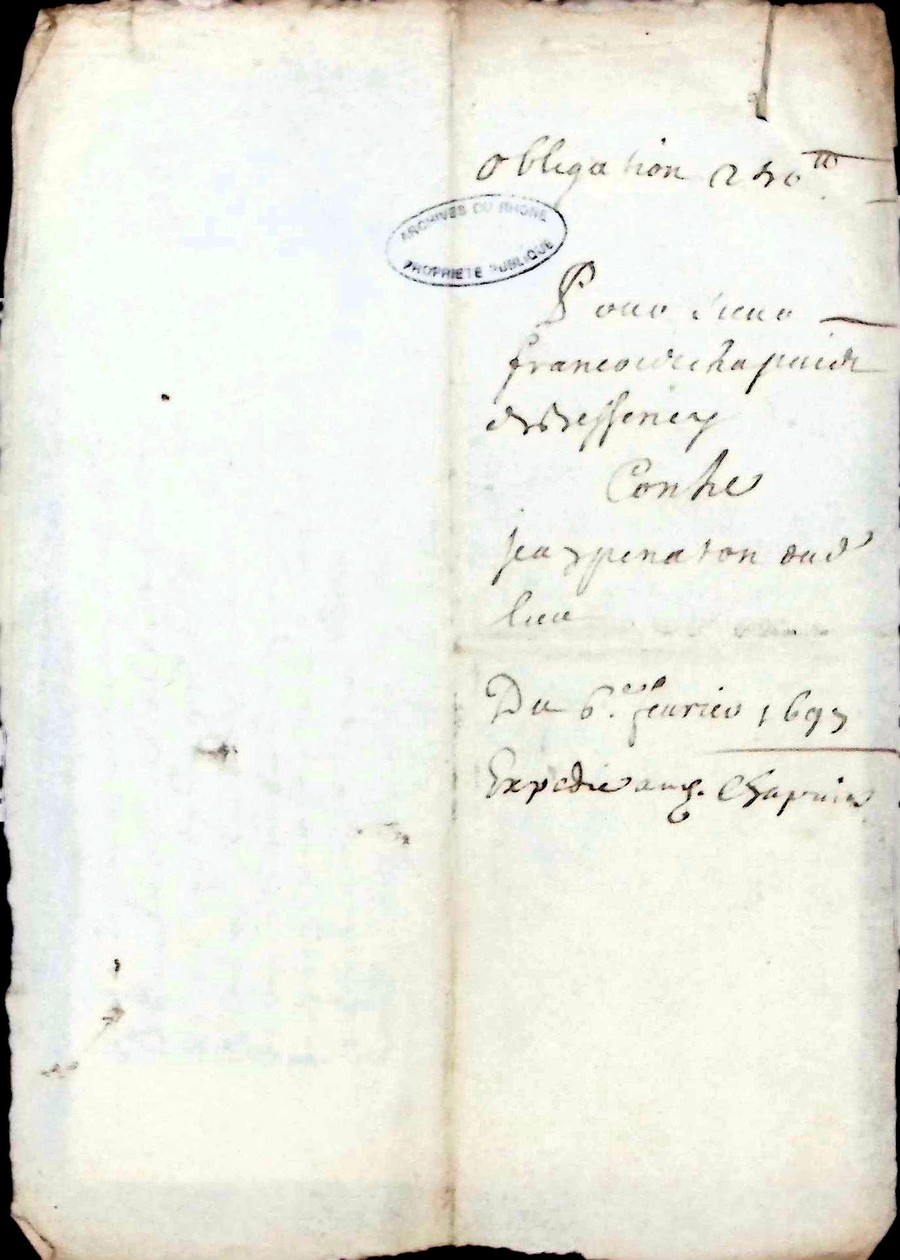 obligation 240ᵗᵗ
ARCHIVES DU RHONE
PROPRIETE PUBLIQUE
Pour sieur
francois chapuis
de
Contre
jean penaton dud
lieu
Du 6.ᵉ feurier 1697
Expedie aud. Chapuis